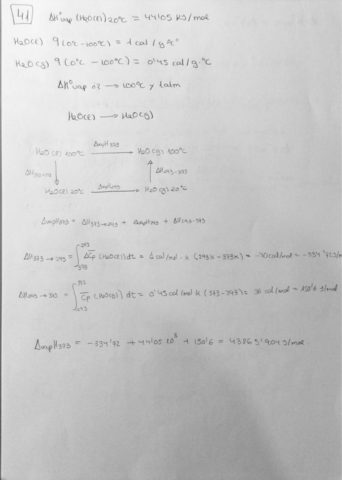 41 ΔH°vap (H2O(l)) 20°C = 44'05 KJ/mol
H2O(l) q (0°C-100°C) = 1 cal/g·°C
H2O(g) q (0°C - 100°C) = 0'45 cal/g·°C
ΔH°vap a? → 100°C y 1atm
H2O(l) → H2O(g)
H2O(l) 100°C ΔvapH373 → H2O(g) 100°C
ΔH373→293 ↓ ↑ ΔH293→373
H2O(l) 20°C ΔvapH293 → H2O(g) 20°C
ΔvapH373 = ΔH373→293 + ΔvapH293 + ΔH293→373
ΔH373→293 = ∫ 293 373 Cp (H2O(l)) dt = 1 cal/mol·K (293K - 373K) = -80 cal/mol = -334'72 J/mol
ΔH293→373 = ∫ 373 293 Cp (H2O(g)) dt = 0'45 cal/mol K (373-293) = 36 cal/mol = 150'6 J/mol
ΔvapH373 = -334'72 + 44'05·10³ + 150'6 = 43865'904 J/mol